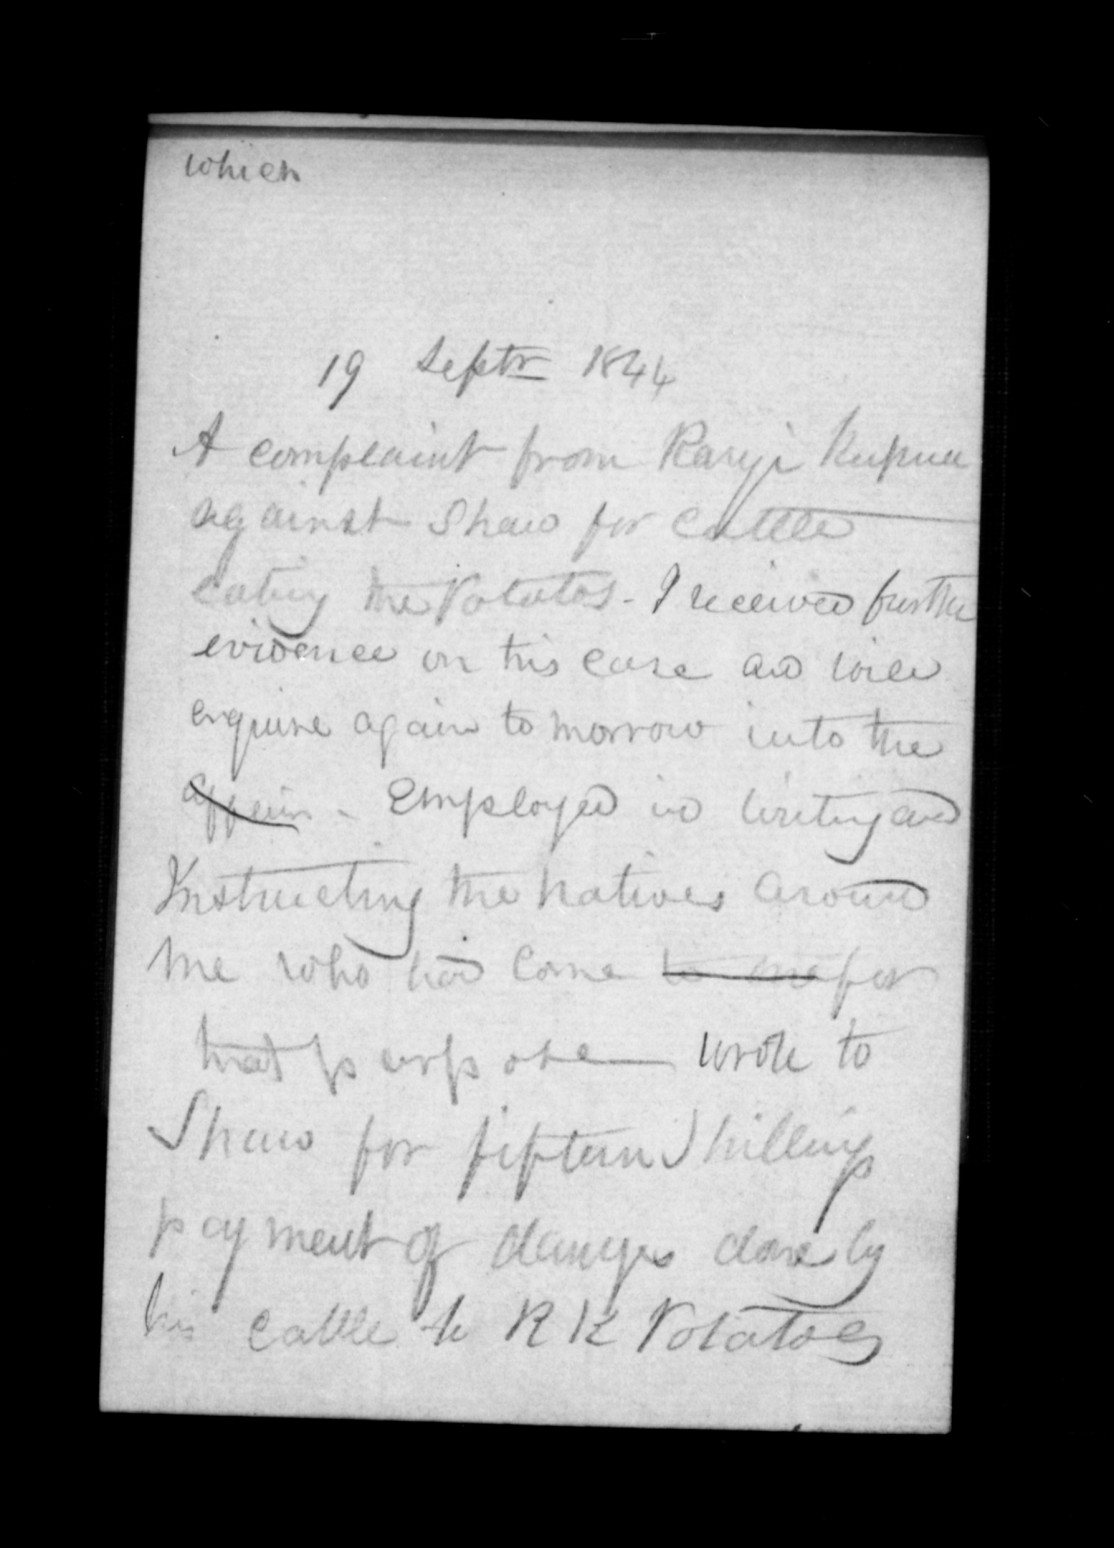 which
19 Septr 1844
A complaint from Rangi Kupua
against Shaw for cattle
eating the Potatos - I received further
evidence on this case and will
enquire again to morrow into the
affair - Employed in writing and
Instructing the natives around
me who had come to me for
that purpose — wrote to
Shaw for fifteen Shilling
payment of damages done by
his cattle to R K Potatoes